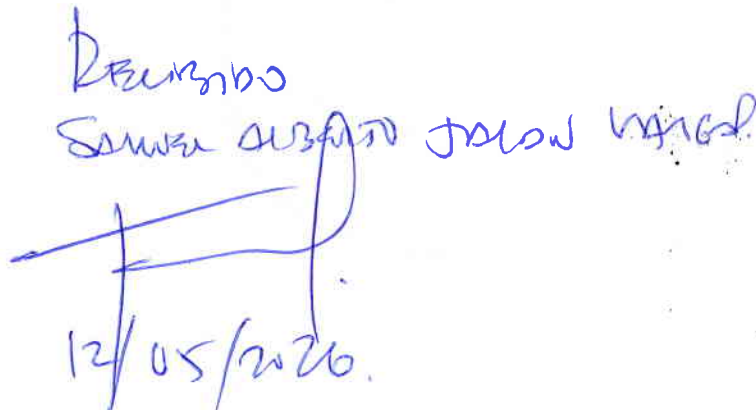 RECIBIDO
SAMUEL ALBERTO JALON
12/05/2026.